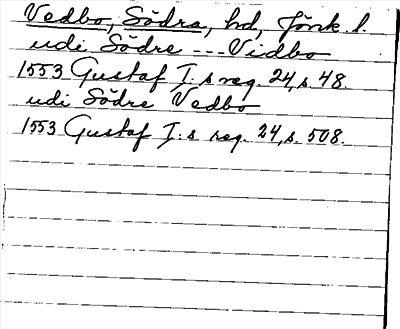 Vedbo, Södra, hd, Jönk. l.
udi Södre --- Vidbo
1553 Gustaf I:s reg. 24, s. 48.
udi Södre Vedbo
1553 Gustaf I:s reg. 24, s. 508.